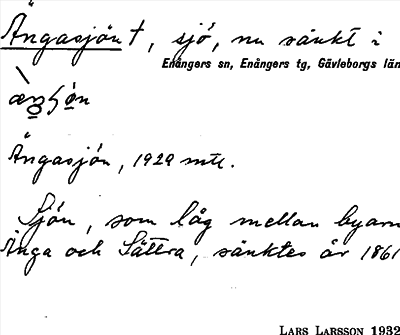 Ängasjön †, sjö, nu sänkt i
Enångers sn, Enångers tg, Gävleborgs län
Ängasjön, 1929 mtl.
Sjön, som låg mellan byarn
Änga och Sättra, sänktes år 1861
LARS LARSSON 1932